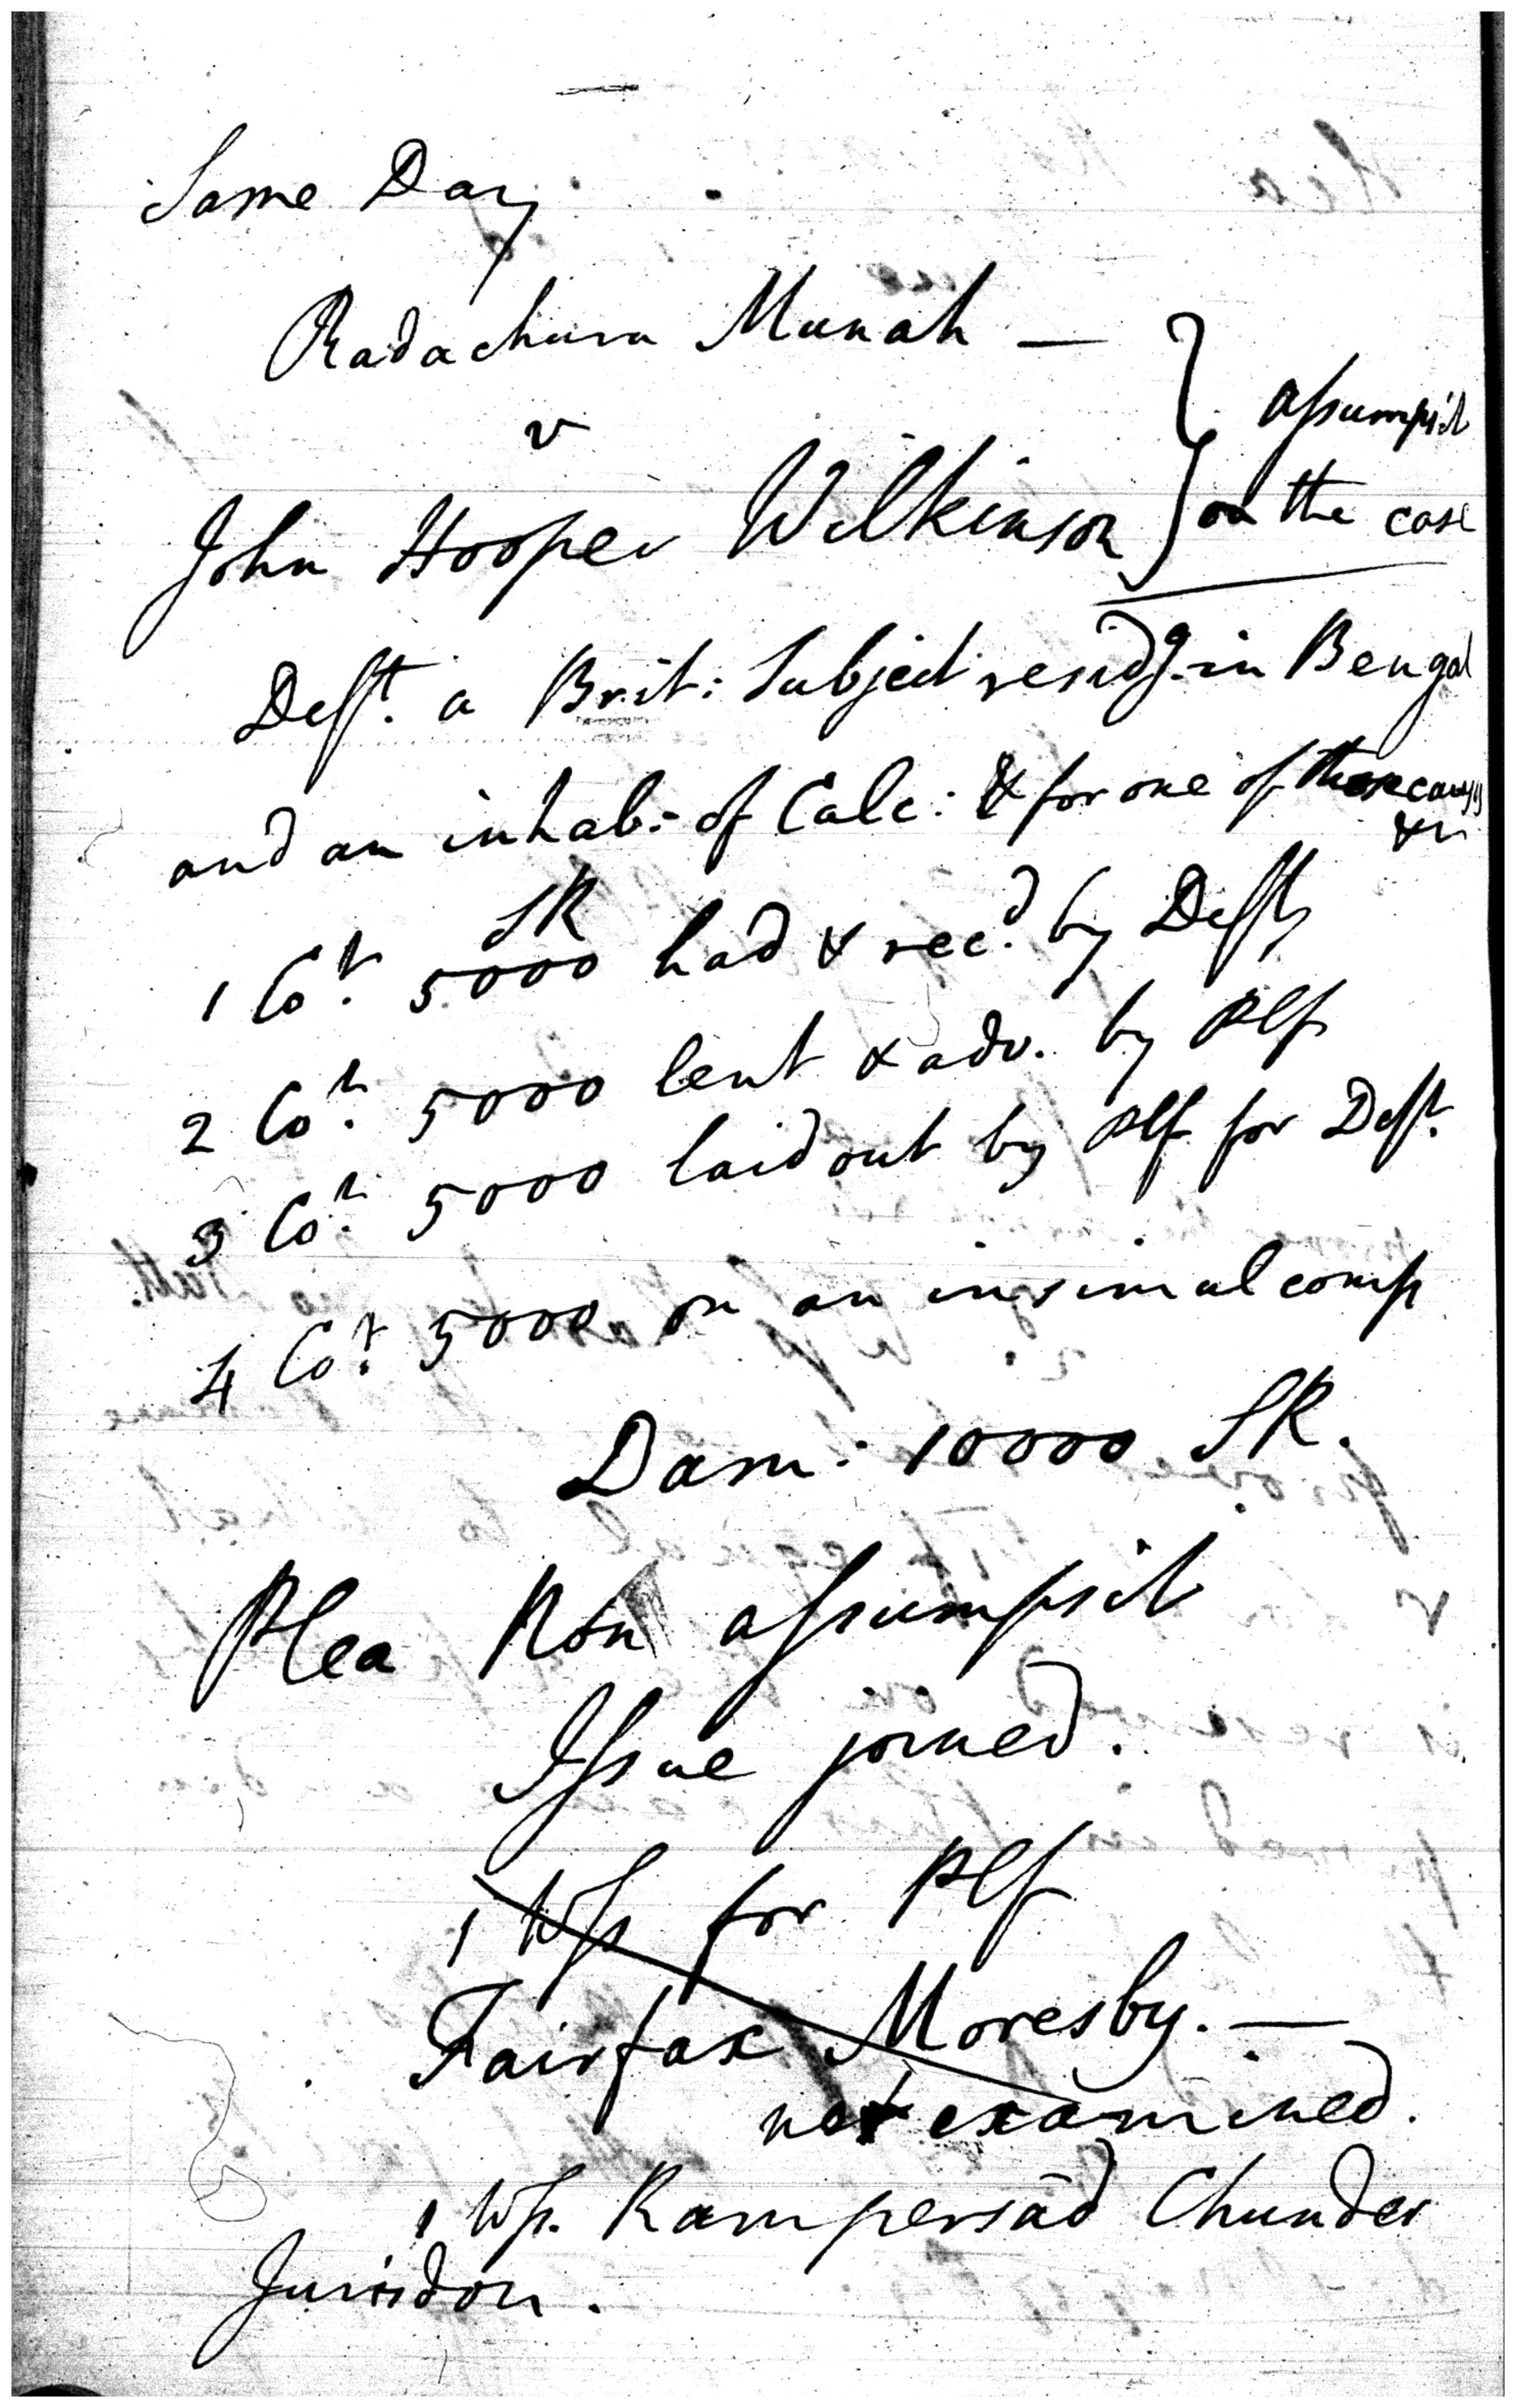 Same Day
Radachurn Munah —
v
assumpsit
John Hooper Wilkinson
on the case
Deft. a Brit: Subject residg. in Bengal
and an inhab: of Calc: & for one of these causes
SR
1 Cot. 5000 had & recd. by Deft
2 Cot. 5000 lent & adv. by Plf
3 Cot. 5000 laid out by Plf for Deft.
4 Cot. 5000 on an insimul comp
Dam: 10000 SR.
Plea Non assumpsit
Issue joined.
1 Wss for Plf
Fairfax Moresby. —
not examined.
1 Wss. Rampersad Chunder
Jurisdon.